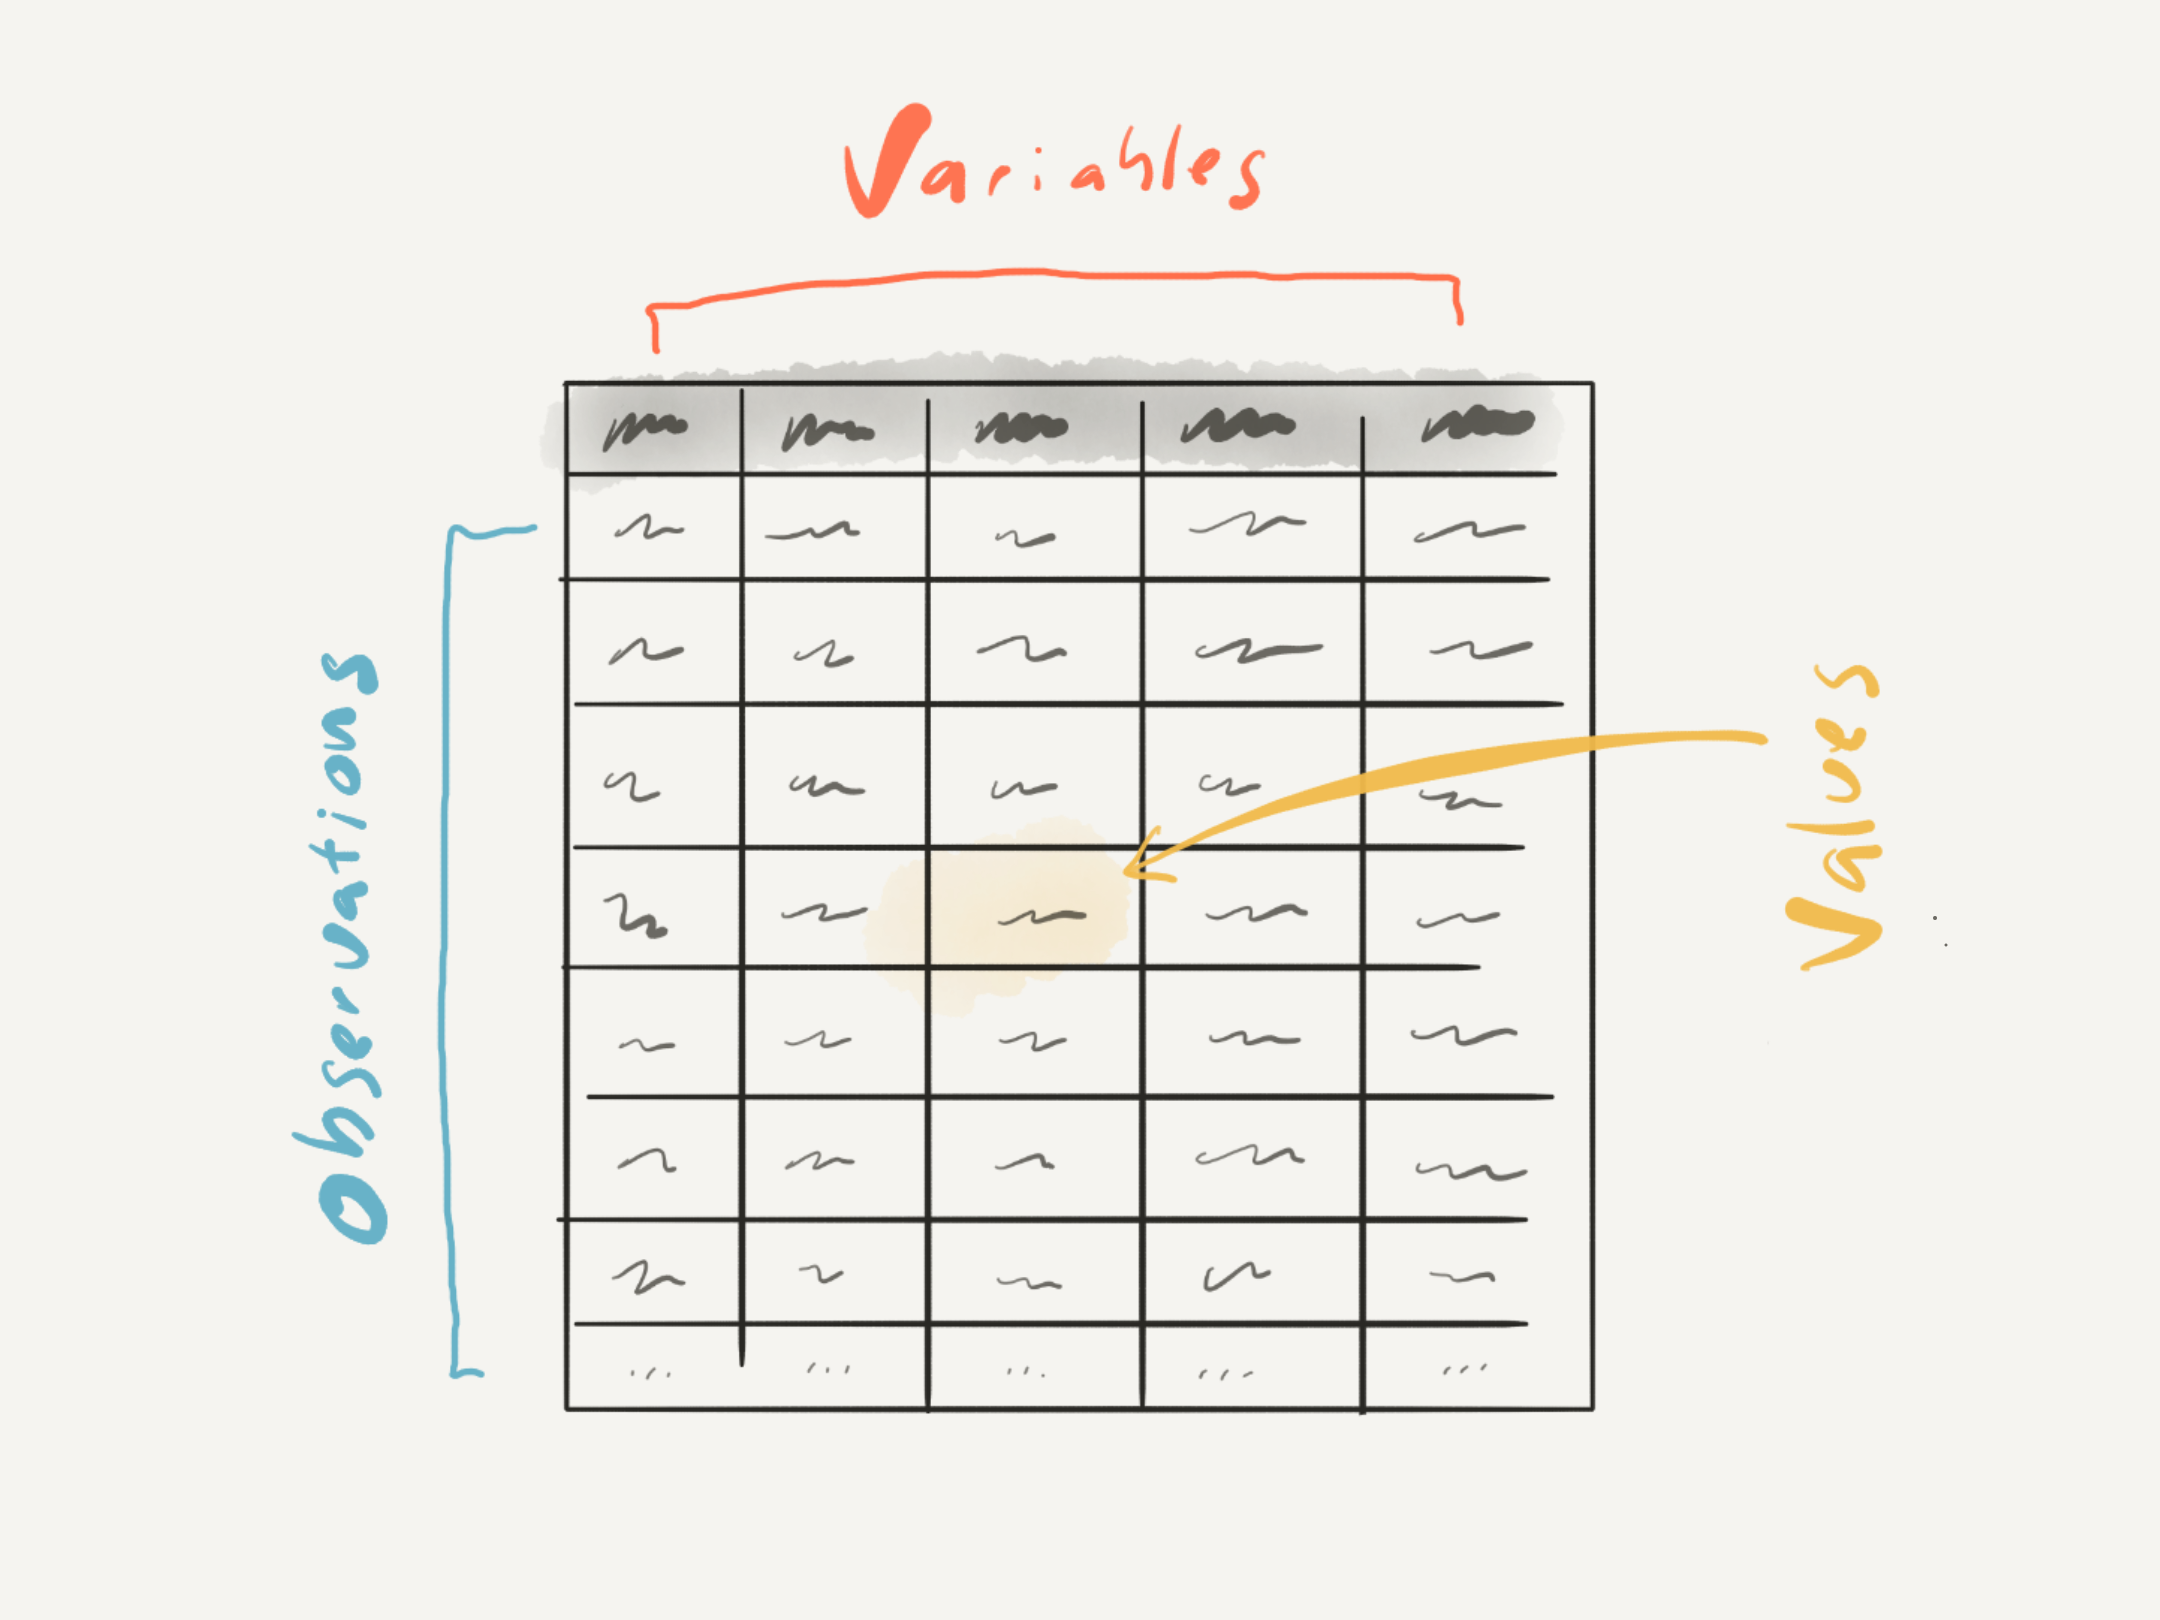 Variables
Observations
Values